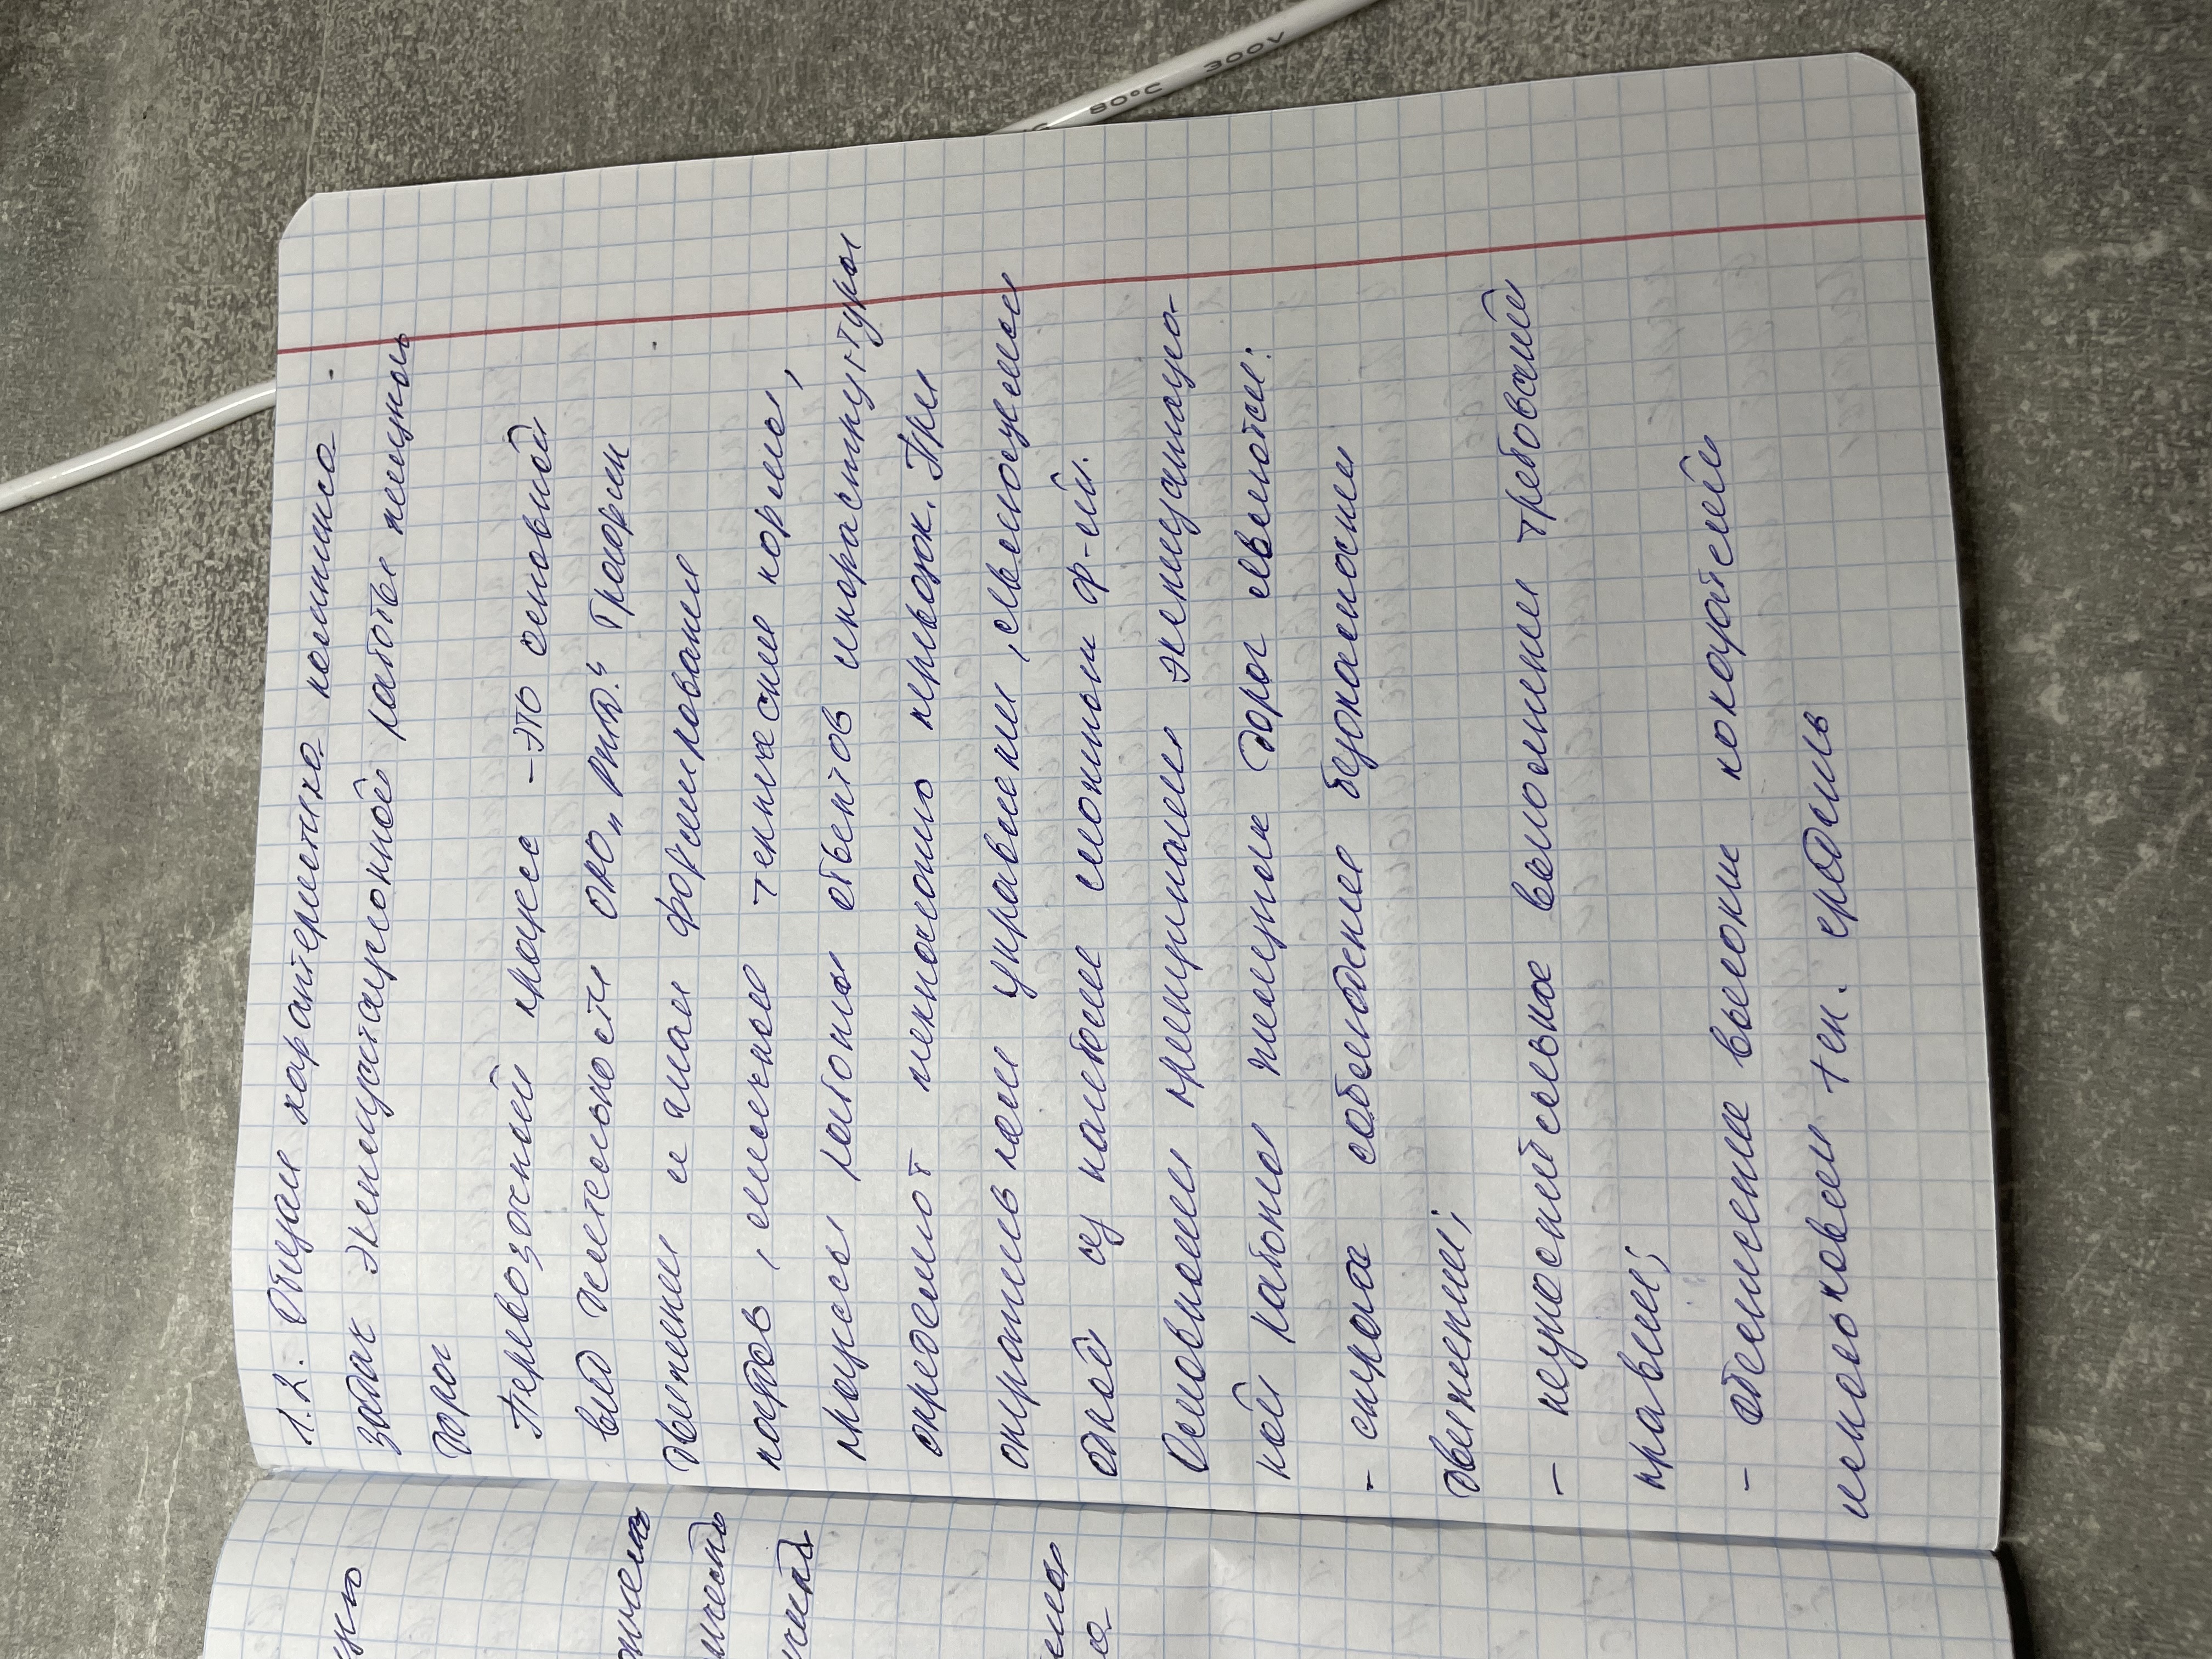 1.2. Общая характеристика комплекса
задач эксплуатационной работы железных
дорог
Перевозочный процесс - это основной
вид деятельности ОАО „РЖД." График
движения и план формирования
поездов, станочные технические нормы,
процессы работы объектов инфраструктуры
определяют технологию перевозок. При
оперативном управлении, являющемся
одной из наиболее сложных ф-ий.
Основными принципами эксплуатацио-
ной работы железных дорог являются:
- строгое соблюдение безопасности
движения;
- неукоснительное выполнение требований
правил;
- обеспечение высоких показателей
использования тех. средств
80°C 300V